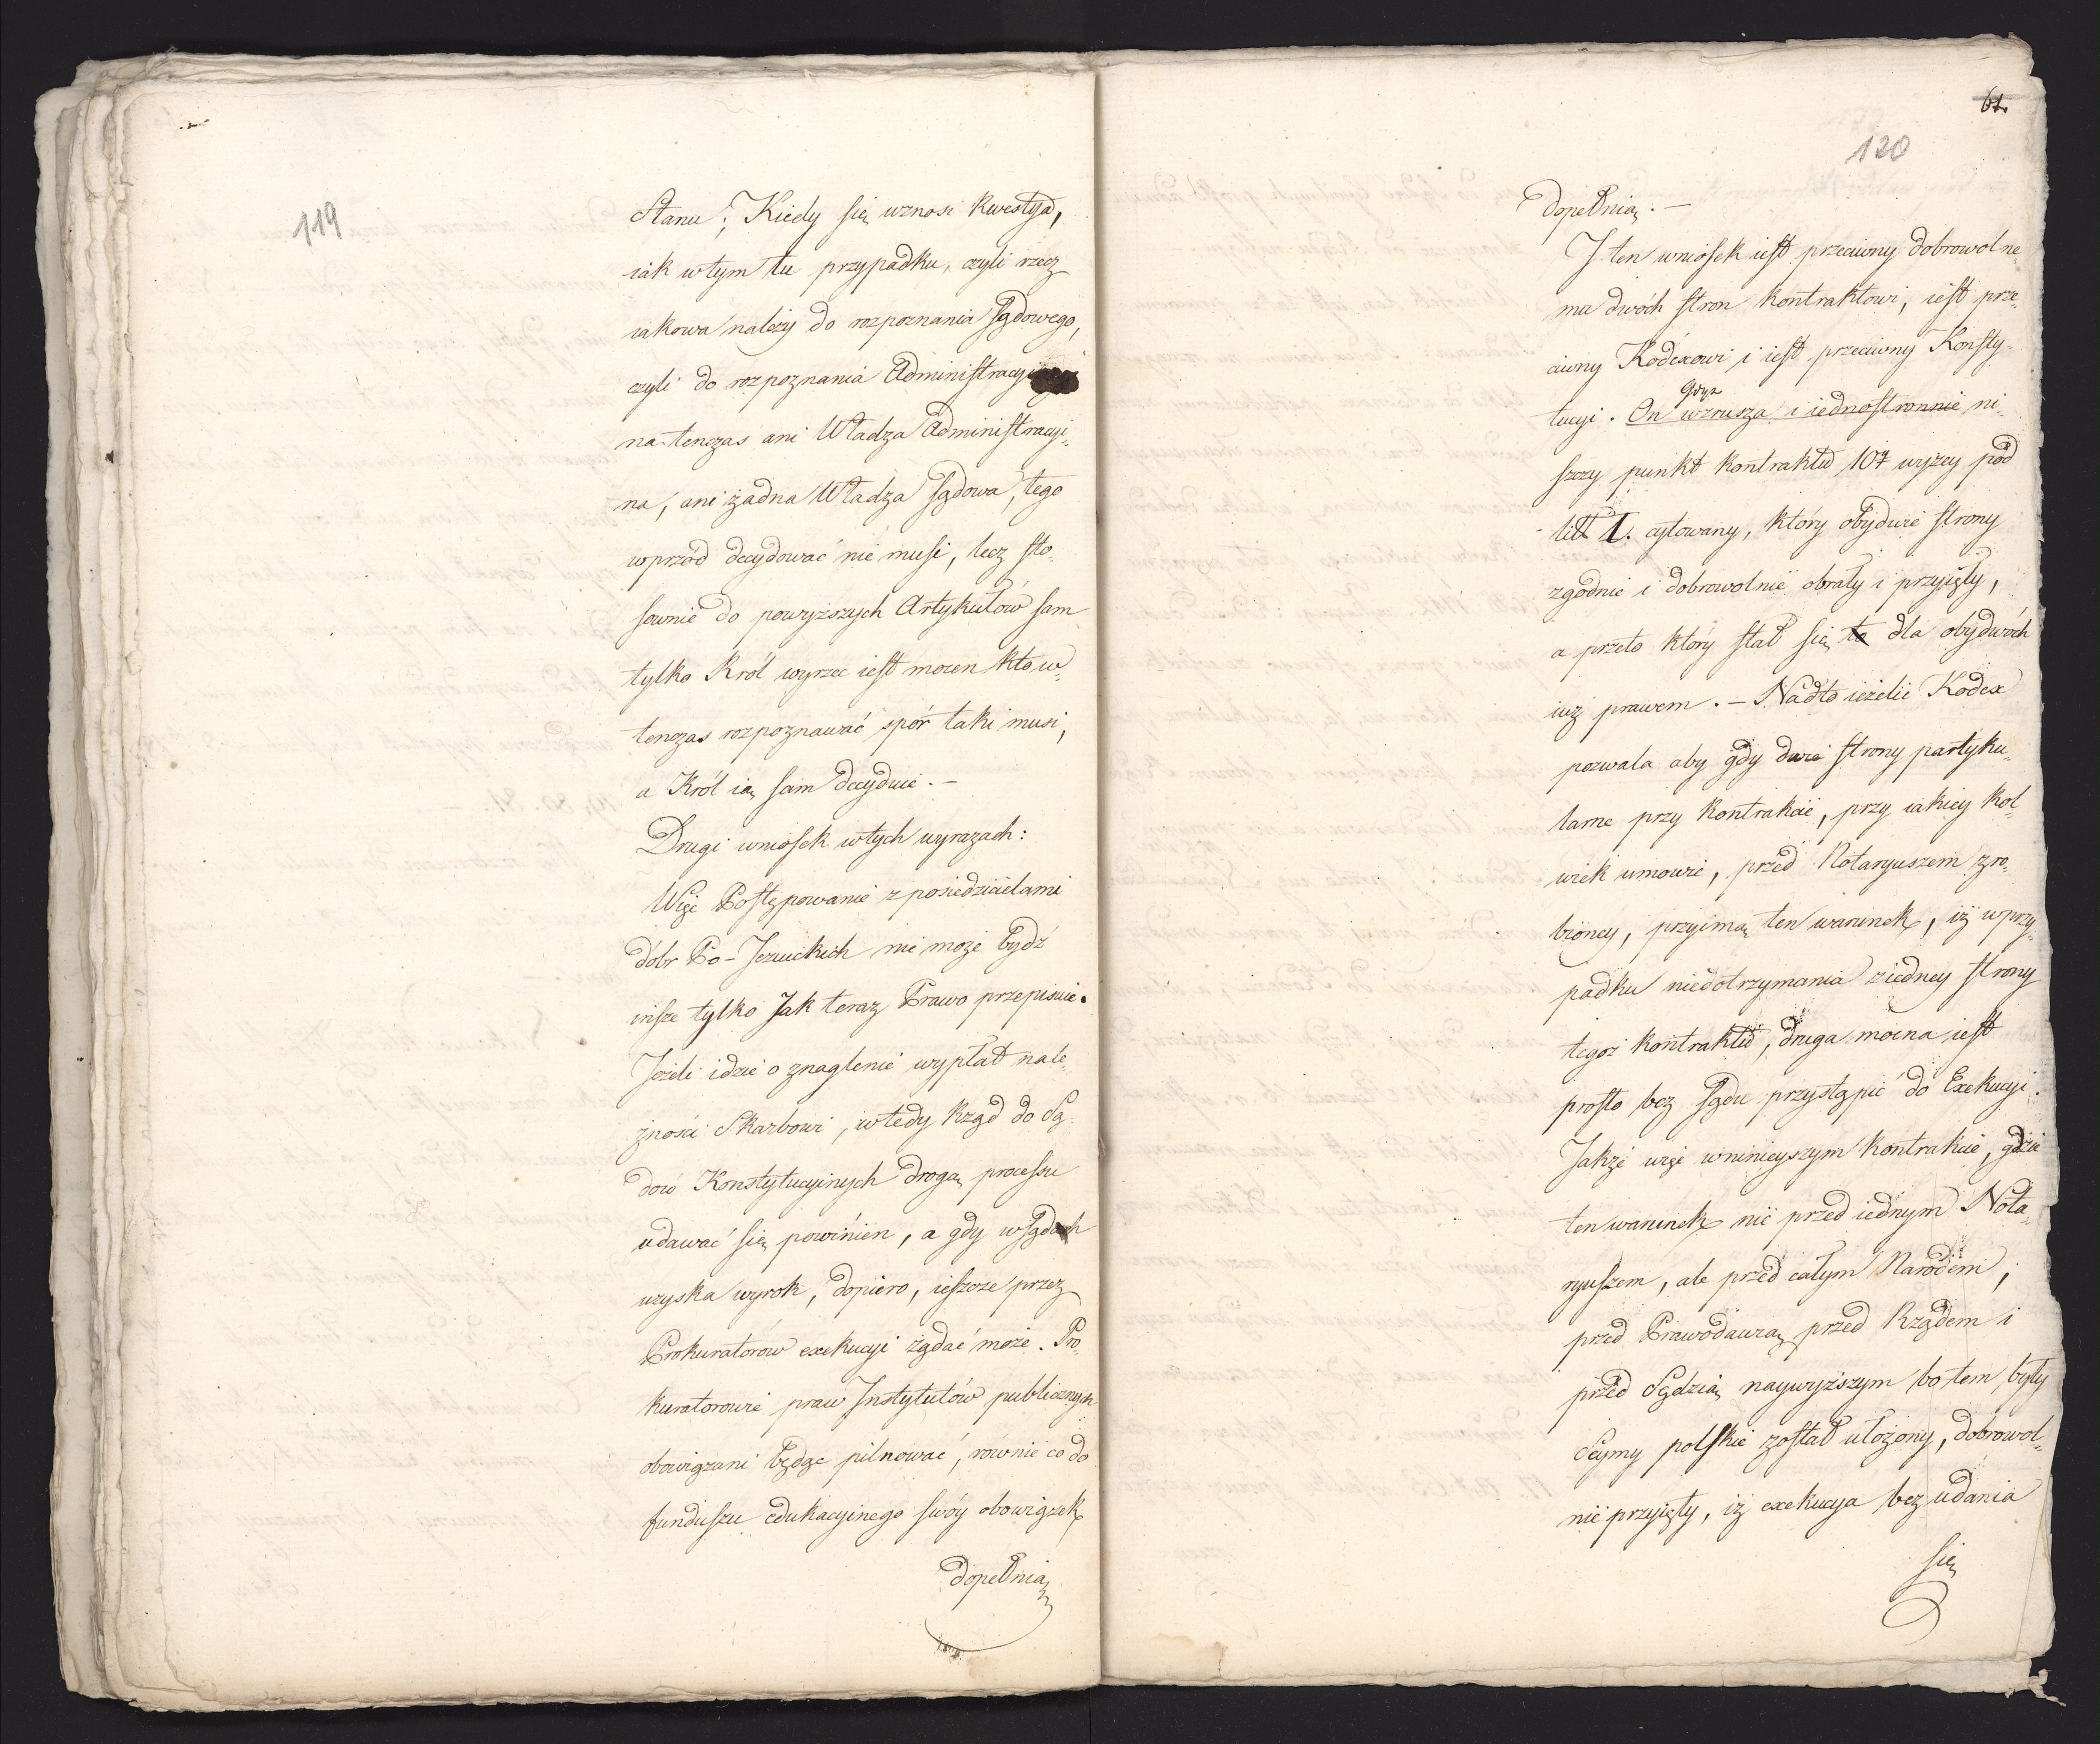 119
Stanu; Kiedy się wznosi kwestya,
iak w tym tu przypadku, czyli rzecz
iakowa należy do rozpoznania Sądowego,
czyli do rozpoznania Administracyi
na tenczas ani Władza Administracyi-
na, ani żadna Władza Sądowa, tego
wprzód decydować nie musi, lecz sto-
sownie do powyższych Artykułów sam
tylko Król wyrzec iest mocen kto w-
tenczas rozpoznawać spór taki musi,
a Król ią sam decyduie. —
Drugi wniosek w tych wyrazach:
Więc Postępowanie z posiedzicielami
dóbr Po-Jezuickich nie może bydź
insze tylko Jak teraz Prawo przepisuie.
Jeżeli idzie o znaglenie wypłat nale-
żności Skarbowi, wtedy Rząd do Są-
dów Konstytucyinych drogą processu
udawać się powinien, a gdy w Sądach
uzyska wyrok, dopiero, ieszcze przez
Prokuratorów exekucyi żądać może. Pro-
kuratorowie praw Instytutów publicznych
obowiązani będąc pilnować, równie co do
funduszu edukacyinego swóy obowiązek
dopełnią
61.
120
dopełnią. —
I ten wniosek iest przeciwny dobrowolne-
mu dwóch stron kontraktowi, iest prze-
ciwny Kodexowi i iest przeciwny Konsty-
tucyi. On wzrusza i iednostronnie ni-
szczy punkt kontraktu 107 wyżey pod
litt I. cytowany, który obydwie strony
zgodnie i dobrowolnie obrały i przyięły,
a przeto który stał się to dla obydwóch
iuż prawem. — Nadto ieżelie Kodex
pozwala aby gdy dwie strony partyku-
larne przy kontrakcie, przy iakiey kol-
wiek umowie, przed Notaryuszem zro-
bioney, przyimą ten warunek, iż w przy-
padku niedotrzymania z iedney strony
tegoż kontraktu, druga mocna iest
prosto bez Sądu przystąpić do Exekucyi.
Jakże więc w ninieyszym kontrakcie, gdzie
ten warunek nie przed iednym Nota-
ryuszem, ale przed całym Narodem,
przed Prawodawcą, przed Rządem i
przed Sędzią naywyższym bo tem były
Seymy polskie został ułożony, dobrowol-
nie przyięty, iż exekucya bez udania
się